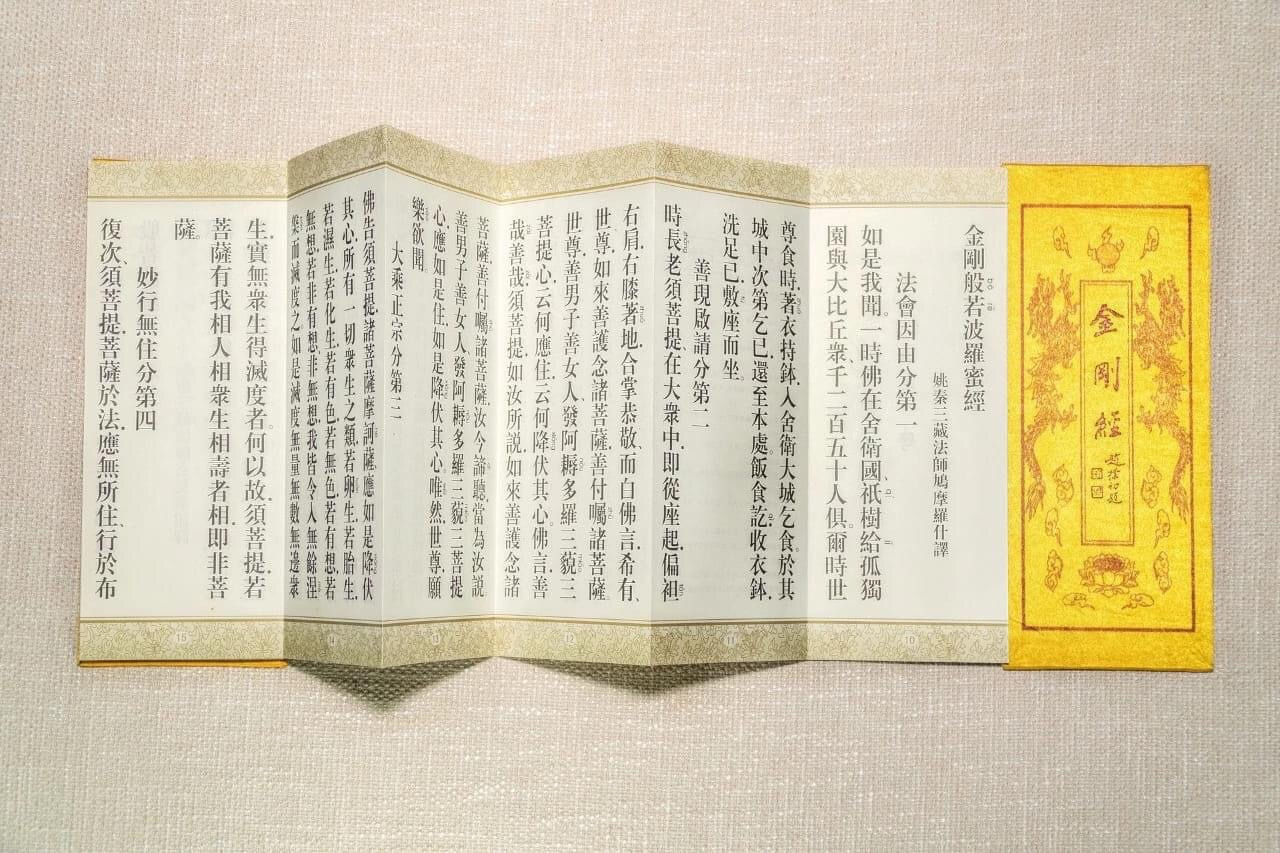 金剛經
趙樸初題
金剛般若波羅蜜經
姚秦三藏法師鳩摩羅什譯
法會因由分第一
如是我聞。一時佛在舍衛國、祇樹給孤獨
園與大比丘衆、千二百五十人俱。爾時世
尊食時、著衣持鉢、入舍衛大城乞食。於其
城中次第乞已、還至本處。飯食訖、收衣鉢、
洗足已、敷座而坐。
善現啟請分第二
時長老須菩提、在大衆中、即從座起、偏袒
右肩、右膝著地、合掌恭敬、而白佛言、希有、
世尊、如來善護念諸菩薩、善付囑諸菩薩。
世尊、善男子善女人、發阿耨多羅三藐三
菩提心、云何應住、云何降伏其心。佛言、善
哉善哉。須菩提、如汝所説、如來善護念諸
菩薩、善付囑諸菩薩、汝今諦聽、當為汝説。
善男子善女人、發阿耨多羅三藐三菩提
心、應如是住、如是降伏其心。唯然、世尊、願
樂欲聞。
大乘正宗分第三
佛告須菩提、諸菩薩摩訶薩、應如是降伏
其心、所有一切衆生之類、若卵生、若胎生、
若濕生、若化生、若有色、若無色、若有想、若
無想、若非有想、非無想、我皆令入無餘涅
槃而滅度之。如是滅度無量無數無邊衆
生、實無衆生得滅度者。何以故、須菩提、若
菩薩有我相人相衆生相壽者相、即非菩
薩。
妙行無住分第四
復次、須菩提、菩薩於法、應無所住、行於布
10
11
12
13
14
15